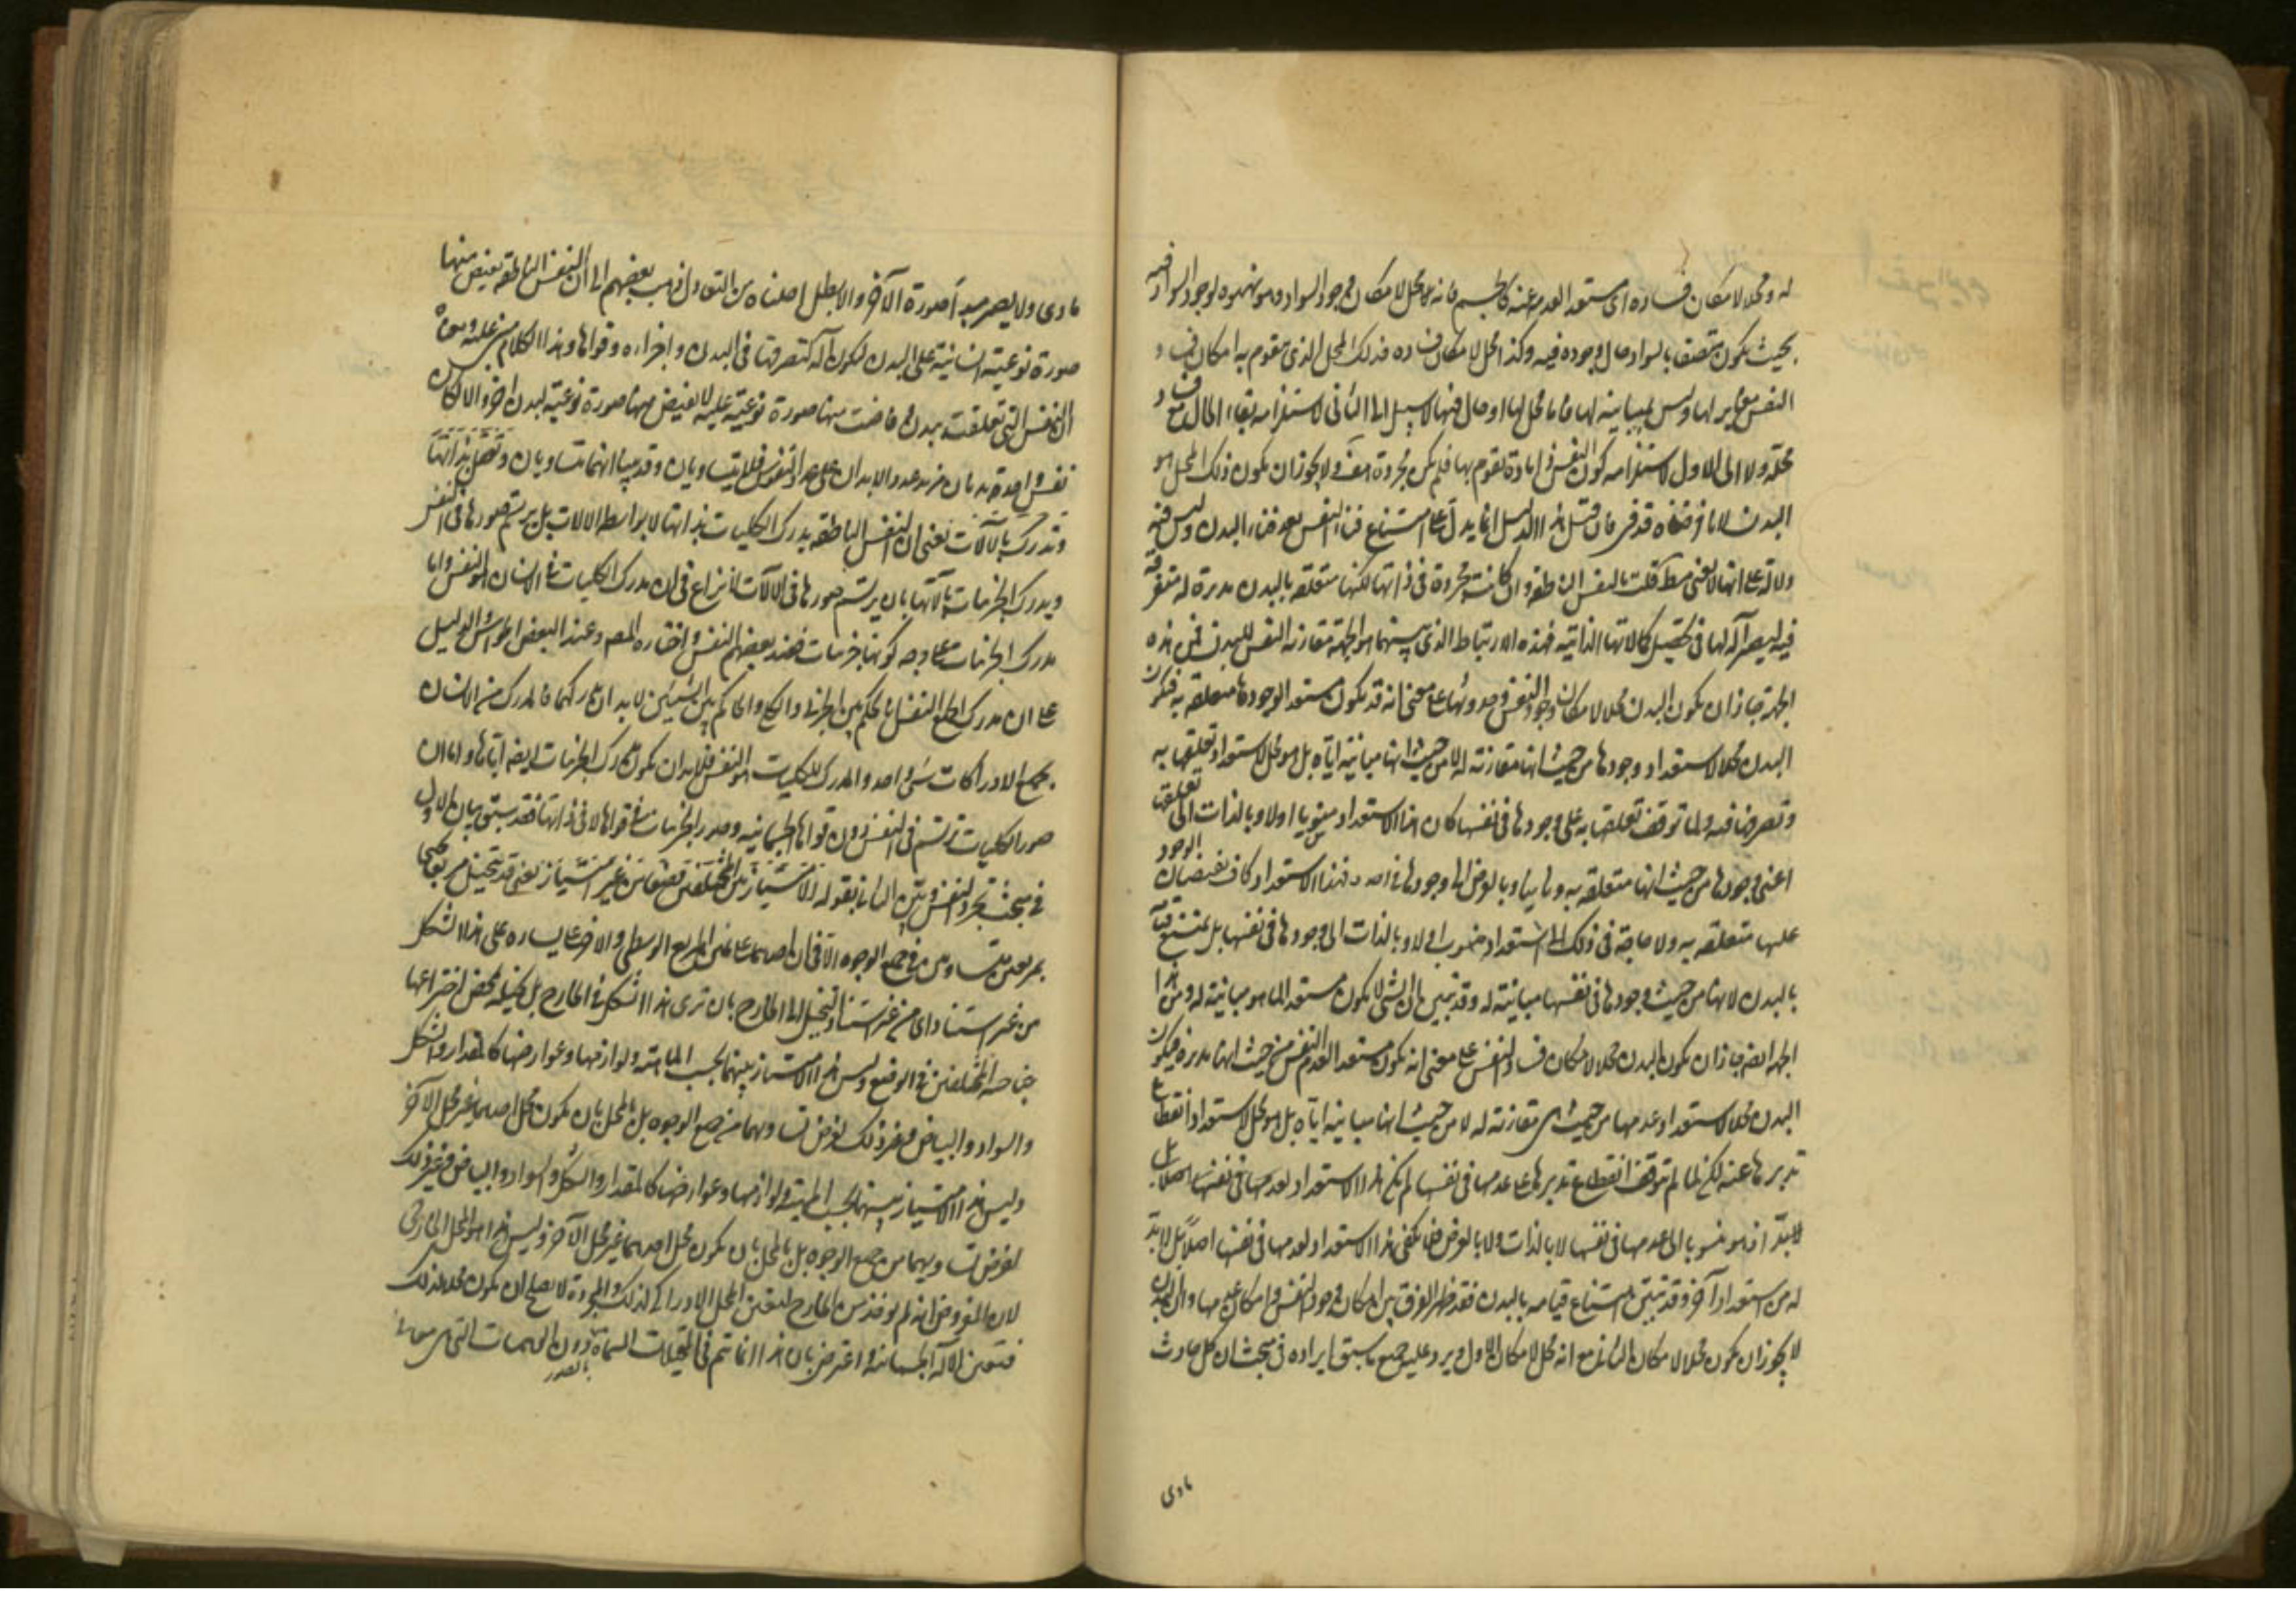 له ومحلا لامكان فساده اى مستعد العدمه عنه كالجسم فانه محل لامكان وجود السواد وهو تهيؤه لوجود السواد فيه
بحيث يكون متصفا بالسواد حال وجوده فيه وكذا محل لامكان فساده فذلك المحل الذى يقوم به امكان فساد
النفس مغاير لها وليس بمباينه لها فاما محل لها او حال فيها لا سبيل الى الثانى لاستلزامه بقاء الحال مع فساد
محله ولا الى الاول لاستلزامه كون النفس ذا مادة تقوم بها فلم يكن مجردة هف ولا يجوز ان يكون ذلك المحل هو
البدن لما فرضناه قد فنى فان قيل هذا الدليل انما يدل على امتناع فناء النفس بعد فناء البدن وليس فيه
دلالة على انها لا تفنى مط قلت النفس الناطقه وان كانت مجردة فى ذاتها لكنها متعلقه بالبدن مدبرة له متصرفة
فيه ليصير آلة لها فى تحصيل كمالاتها الذاتيه فهذه الارتباط الذى بينهما هو الجهة مقارنه النفس للبدن فمن هذه
الجهة جاز ان يكون البدن محلا لامكان وجود النفس وحدوثها على معنى انه قد يكون مستعد الوجودها متعلقه به فيكون
البدن محلا لاستعداد وجودها من حيث انها مقارنته له لا من حيث انها مباينه اياه بل هو محل لاستعداد تعلقها به
وتصرفها فيه ولما توقف تعلقها به على وجودها فى نفسها كان هذا الاستعداد منسوبا اولا وبالذات الى تعلقها
اعنى وجودها من حيث انها متعلقه به وثانيا وبالعرض الى وجودها فى نفسها فهذا الاستعداد كاف لفيضان الوجود
عليها متعلقه به ولا حاجة فى ذلك الى استعداد منسوب اولا وبالذات الى وجودها فى نفسها بل يمتنع قيامه
بالبدن لانها من حيث وجودها فى نفسها مباينة له وقد تبين ان الشئ لا يكون مستعدا لما هو مباينة له ومن هذا
الجهه ايضا جاز ان يكون البدن محلا لامكان فساد النفس على معنى انه يكون مستعد العدم النفس من حيث انها مدبره فيكون
البدن محلا لاستعداد عدمها من حيث هى مقارنته له لا من حيث انها مباينه اياه بل هو محل لاستعداد انقطاع
تدبيرها عنه لكن لما لم يتوقف انقطاع تدبيرها على عدمها فى نفسها لم يكن هذا الاستعداد لعدمها فى نفسها اصلا بل
لابد اذ هو منسوبا الى عدمها فى نفسها لا بالذات ولا بالعرض فلا يكفى هذا الاستعداد لعدمها فى نفسها اصلا بل لابد
له من استعداد آخر وقد تبين امتناع قيامه بالبدن فقد ظهر الفرق بين امكان وجود النفس وامكان عدمها وان البدن
لا يجوز ان يكون محلا لامكان الثانى مع انه محل لامكان الاول ويرد عليه جميع ما سبق ايراده فى مبحث ان كل حادث
مادى
مادى ولا يصير مبدأ صورة الآخر والا بطل اصلناه من التعادل ذهب بعضهم الى ان النفس الناطقه يفيض منها
صورة نوعية انسانية على البدن لكون آله لتصرفها فى البدن واجزاءه وقواها وهذا الكلام مبنى عليه
ان النفس التى تعلقت ببدن فاضت منها صورة نوعية عليه لا يفيض منها صورة نوعية لبدن آخر والا لكان
نفس واحدة بدنان فيزيد عدد الابدان على عدد النفوس فلا يتساويان وقد بينا انهما متساويان وتعقل بذاتها
وتدرك بالآلات يعنى ان النفس الناطقه يدرك الكليات بذاتها لا بواسطه الالات بل يرتسم صورها فى النفس
ويدرك الجزئيات بآلاتها بان يرتسم صورها فى الآلات لا نزاع فى ان مدرك الكليات فى الانسان هو النفس واما
مدرك الجزئيات على وجه كونها جزئيات فعند بعضهم النفس واختاره المصـ وعند البعض الحواس والدليل
على ان مدرك الجميع النفس انا نحكم بين الجزئى والكلى والحاكم بين الشيئين لابد ان يدركهما فالمدرك من الانسان
بجميع الادراكات شئ واحد والمدرك للكليات هو النفس فلابد ان يكون مدرك الجزئيات ايضا اياها واما ان
صور الكليات ترتسم فى النفس دون قواها الجسمانيه وصور الجزئيات فى قواها لا فى ذاتها فقد سبق بيان الاول
فى مبحث تجرد النفس وبين الثانى بقوله للامتياز بين المختلفين وضعا من غير استناد يعنى قد نتخيل مربعا مجنحا
بمربعين متساويين فى جميع الوجوه الا فى ان احدهما على يمين المربع الوسطى والاخر على يساره على هذا الشكل
من غير استناد اى من غير استناد التخيل الى الخارج بان نرى هذا الشكل فى الخارج بل نتخيله بمحض اختراعها
جناحيه المختلفين فى الوضع وليس هذا الامتياز بينهما بحسب الماهية ولوازمها وعوارضها كالمقدار والشكل
والسواد والبياض وغير ذلك لفرض تساويهما فى جميع الوجوه بل بالمحل بان يكون محل احدهما غير محل الآخر
وليس هذا الامتياز بينهما بحسب الماهية ولوازمها وعوارضها كالمقدار والشكل والسواد والبياض وغير ذلك
لفرض تساويهما من جميع الوجوه بل بالمحل بان يكون محل احدهما غير محل الآخر وليس هذا هو المحل الخارجى
لان المفروض انه لم يؤخذ من الخارج فتعين المحل الادراكى لذلك والمجردة لا يصلح ان يكون محلا لذلك
فتعين الآله الجسمانية واعترض بان هذا انما يتم فى التخيلات المسماة بالصور دون الوهميات التى هى معانى